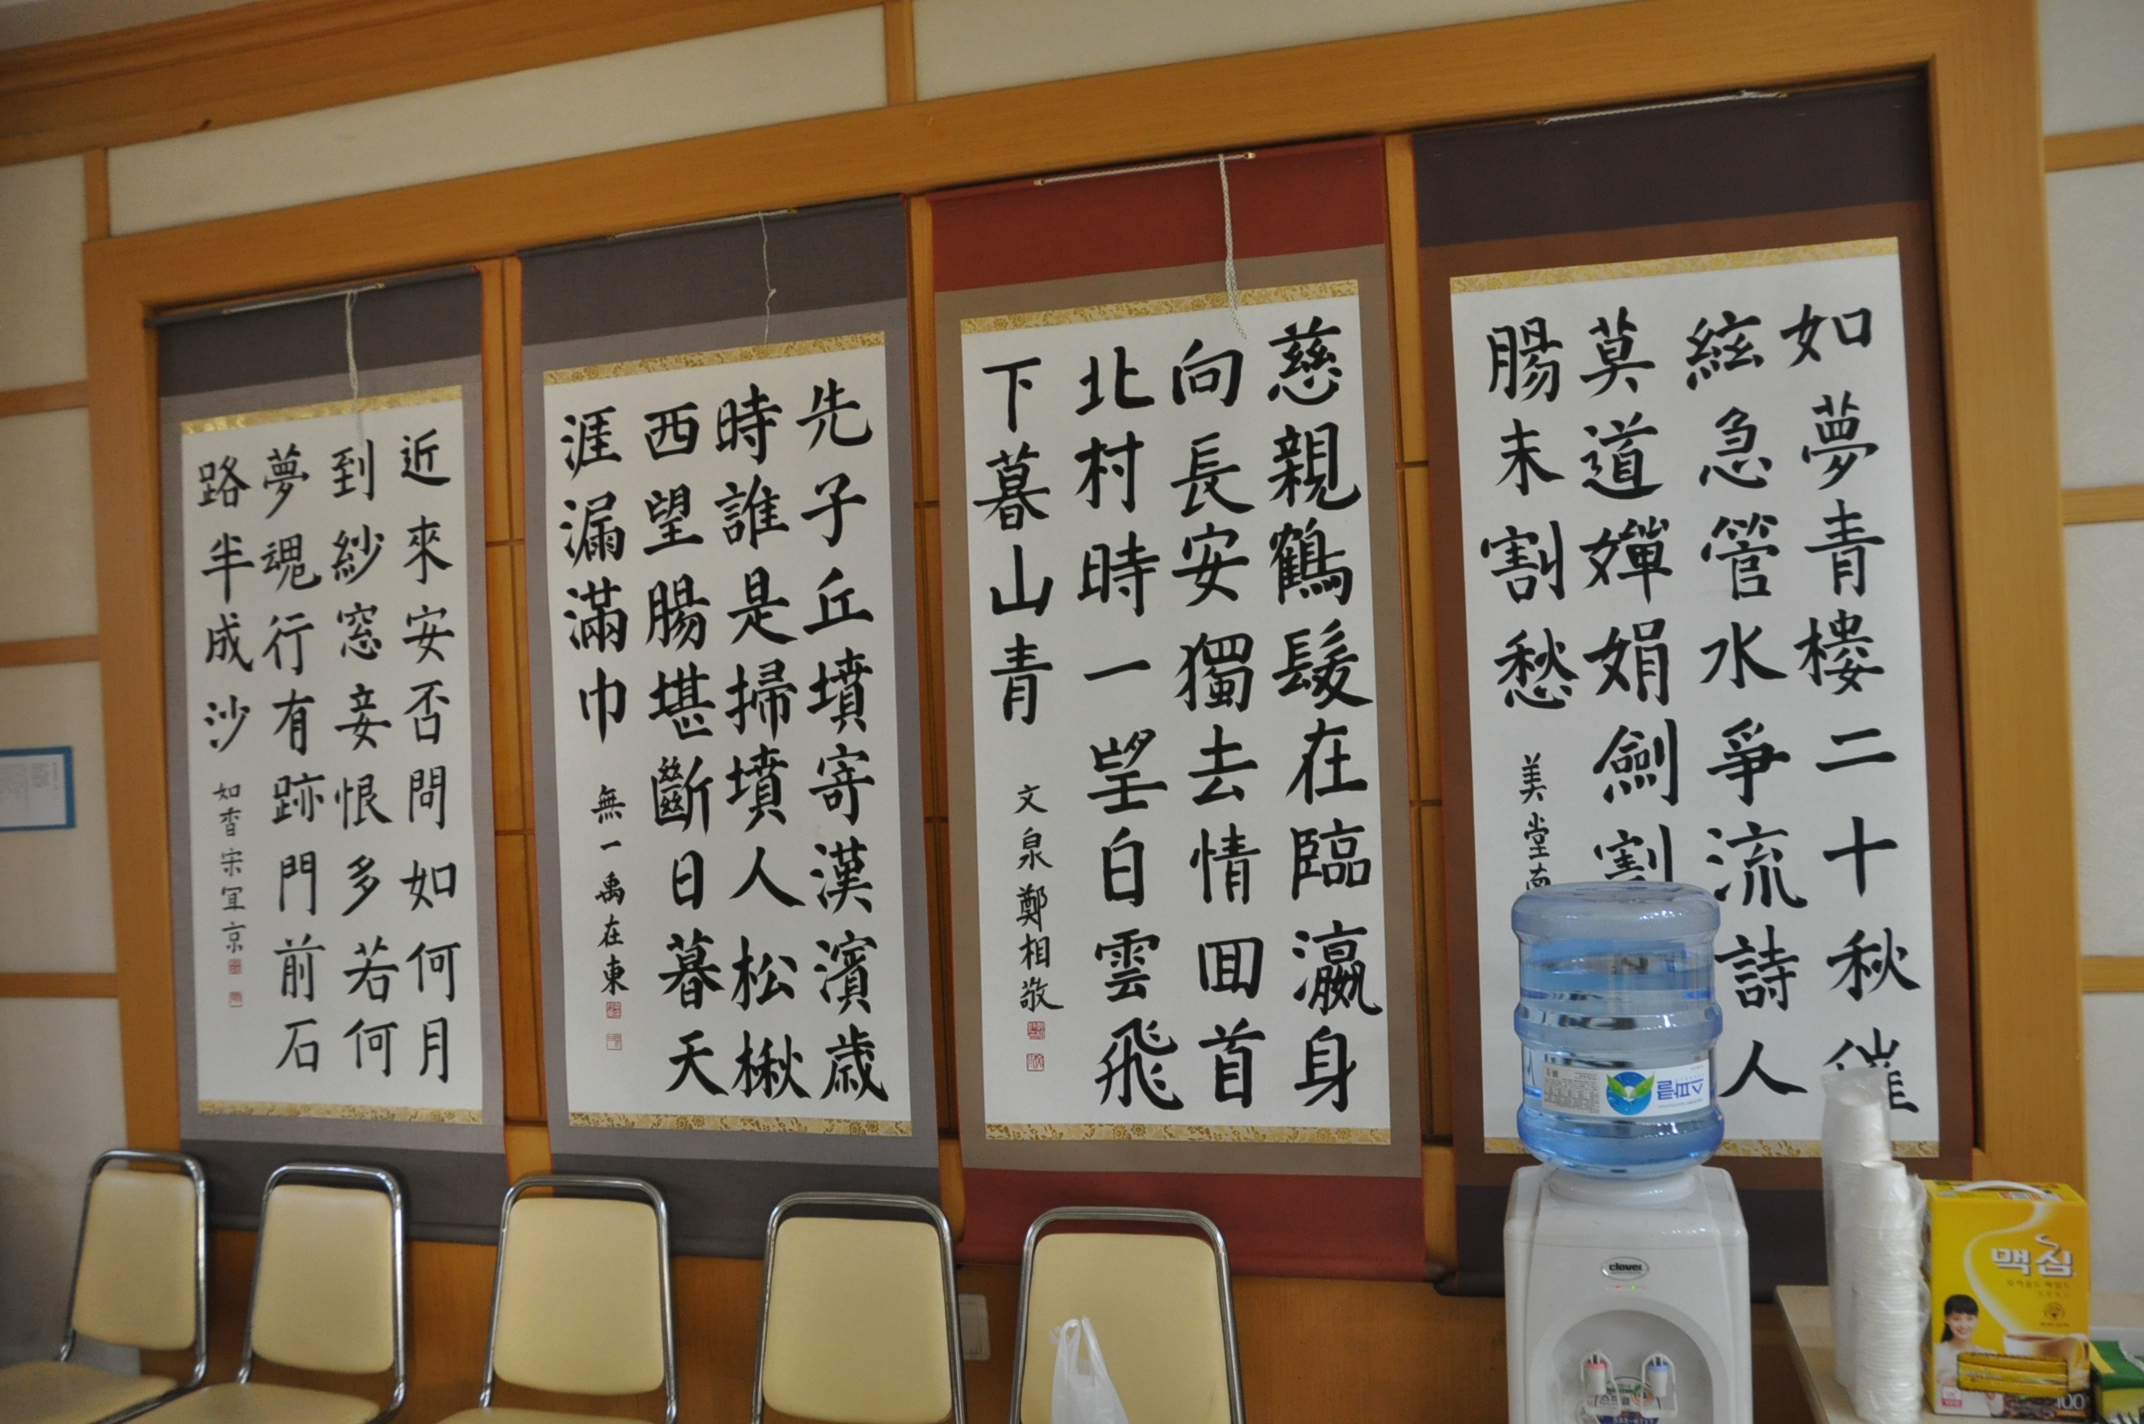 如夢青樓二十秋催
絃急管水爭流詩人
莫道嬋娟劍割
腸未割愁
美堂南
慈親鶴髮在臨瀛身
向長安獨去情回首
北村時一望白雲飛
下暮山青
文泉鄭相敬
先子丘墳寄漢濱歲
時誰是掃墳人松楸
西望腸堪斷日暮天
涯漏滿巾
無一禹在東
近來安否問如何月
到紗窓妾恨多若何
夢魂行有跡門前石
路半成沙
如香宋宜京
스파클
clover
맥심
100